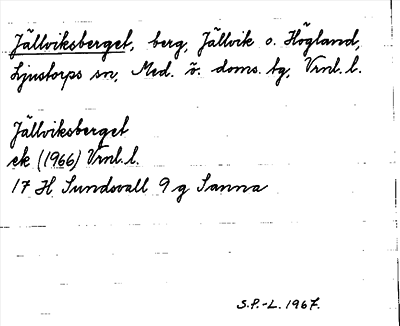 Jällviksberget, berg, Jällvik o. Högland,
Ljustorps sn, Med. ö. doms. tg, Vrnl. l.
Jällviksberget
ek (1966) Vrnl. l.
17 H Sundsvall 9 g Sanna
S.P.-L. 1967.